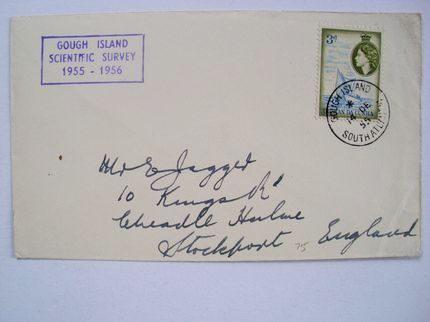 GOUGH ISLAND
SCIENTIFIC SURVEY
1955 - 1956
3d
GOUGH ISLAND
14 DE
55
SOUTH ATLANTIC
Mr E Jagger
10 Kings Rd
Cheadle Hulme
Stockport
75
England